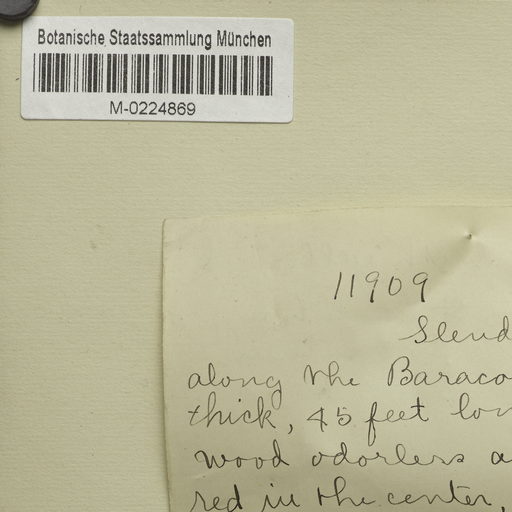 Botanische Staatssammlung München
M-0224869
11909
Slend
along the Baraco
thick, 45 feet lon
wood odorless a
red in the center,